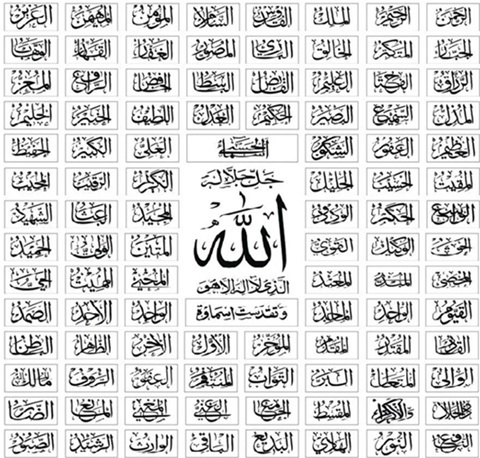 الرحمن الرحيم الملك القدوس السلام المؤمن المهيمن العزيز
الجبار المتكبر الخالق البارئ المصور الغفار القهار الوهاب
الرزاق الفتاح العليم القابض الباسط الخافض الرافع المعز
المذل السميع البصير الحكم العدل اللطيف الخبير الحليم
العظيم الغفور الشكور العلي الكبير الحفيظ
المقيت الحسيب الجليل جل جلاله الكريم الرقيب المجيب
الواسع الحكيم الودود الله المجيد الباعث الشهيد
الحق الوكيل القوي المتين الولي الحميد
المحصي المبدئ المعيد الذي لا إله إلا هو المحيي المميت الحي
القيوم الواجد الماجد وتقدست اسماؤه الواحد الأحد الصمد
القادر المقتدر المقدم المؤخر الأول الآخر الظاهر الباطن
الوالي المتعال البر التواب المنتقم العفو الرؤوف مالك
ذو الجلال والإكرام المقسط الجامع الغني المغني المانع الضار
النافع النور الهادي البديع الباقي الوارث الرشيد الصبور